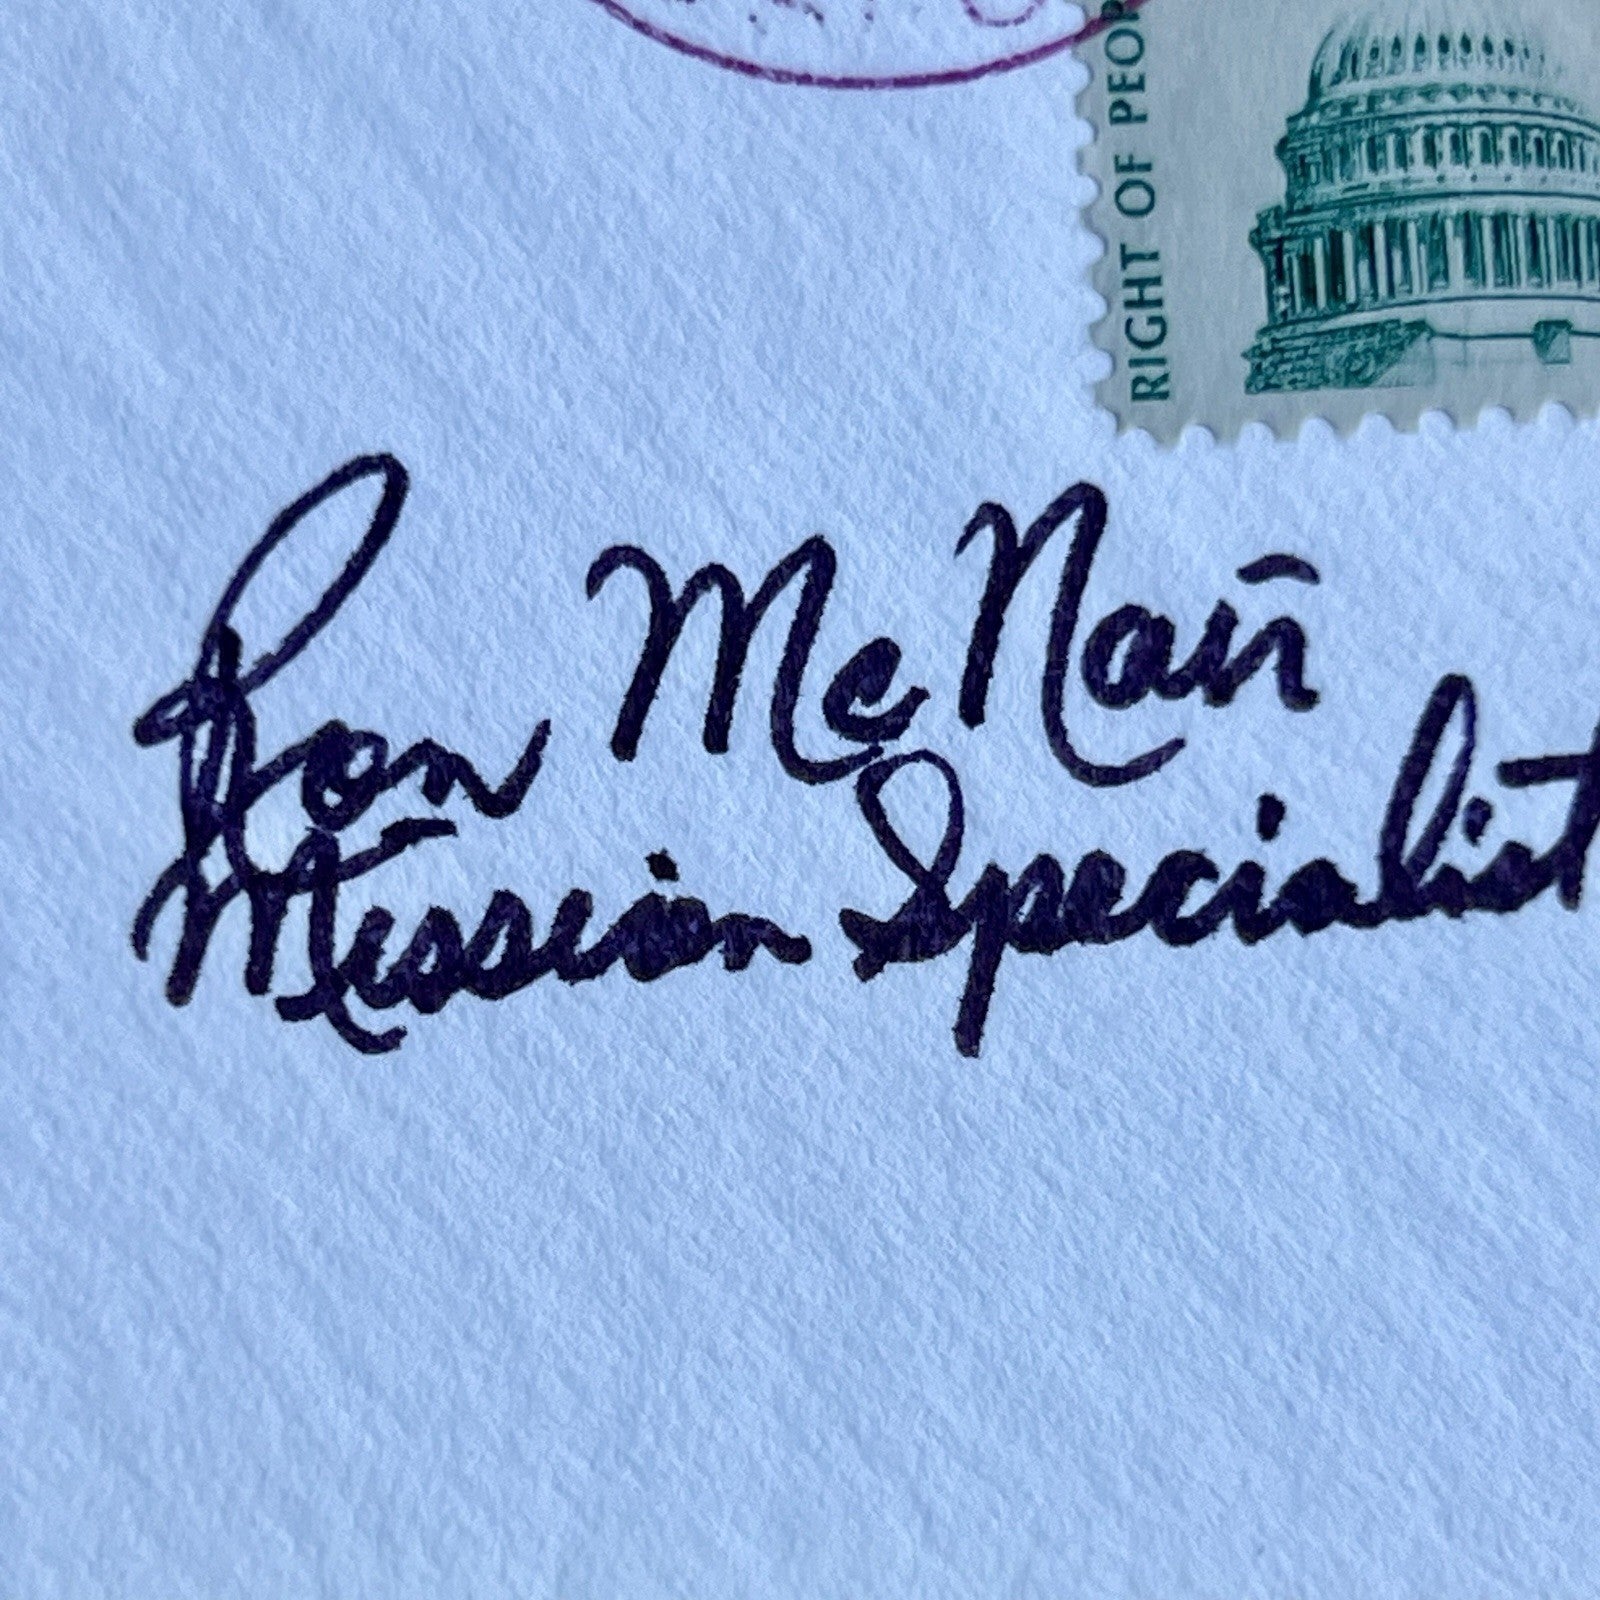 RIGHT OF PEOP
Ron McNair
Mission Specialist